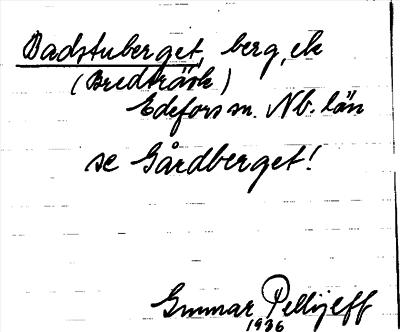 Badstuberget, berg, ek
(Bredträsk)
Edefors sn. Nb. län
se Gårdberget!
Gunnar Pellijeff
1936